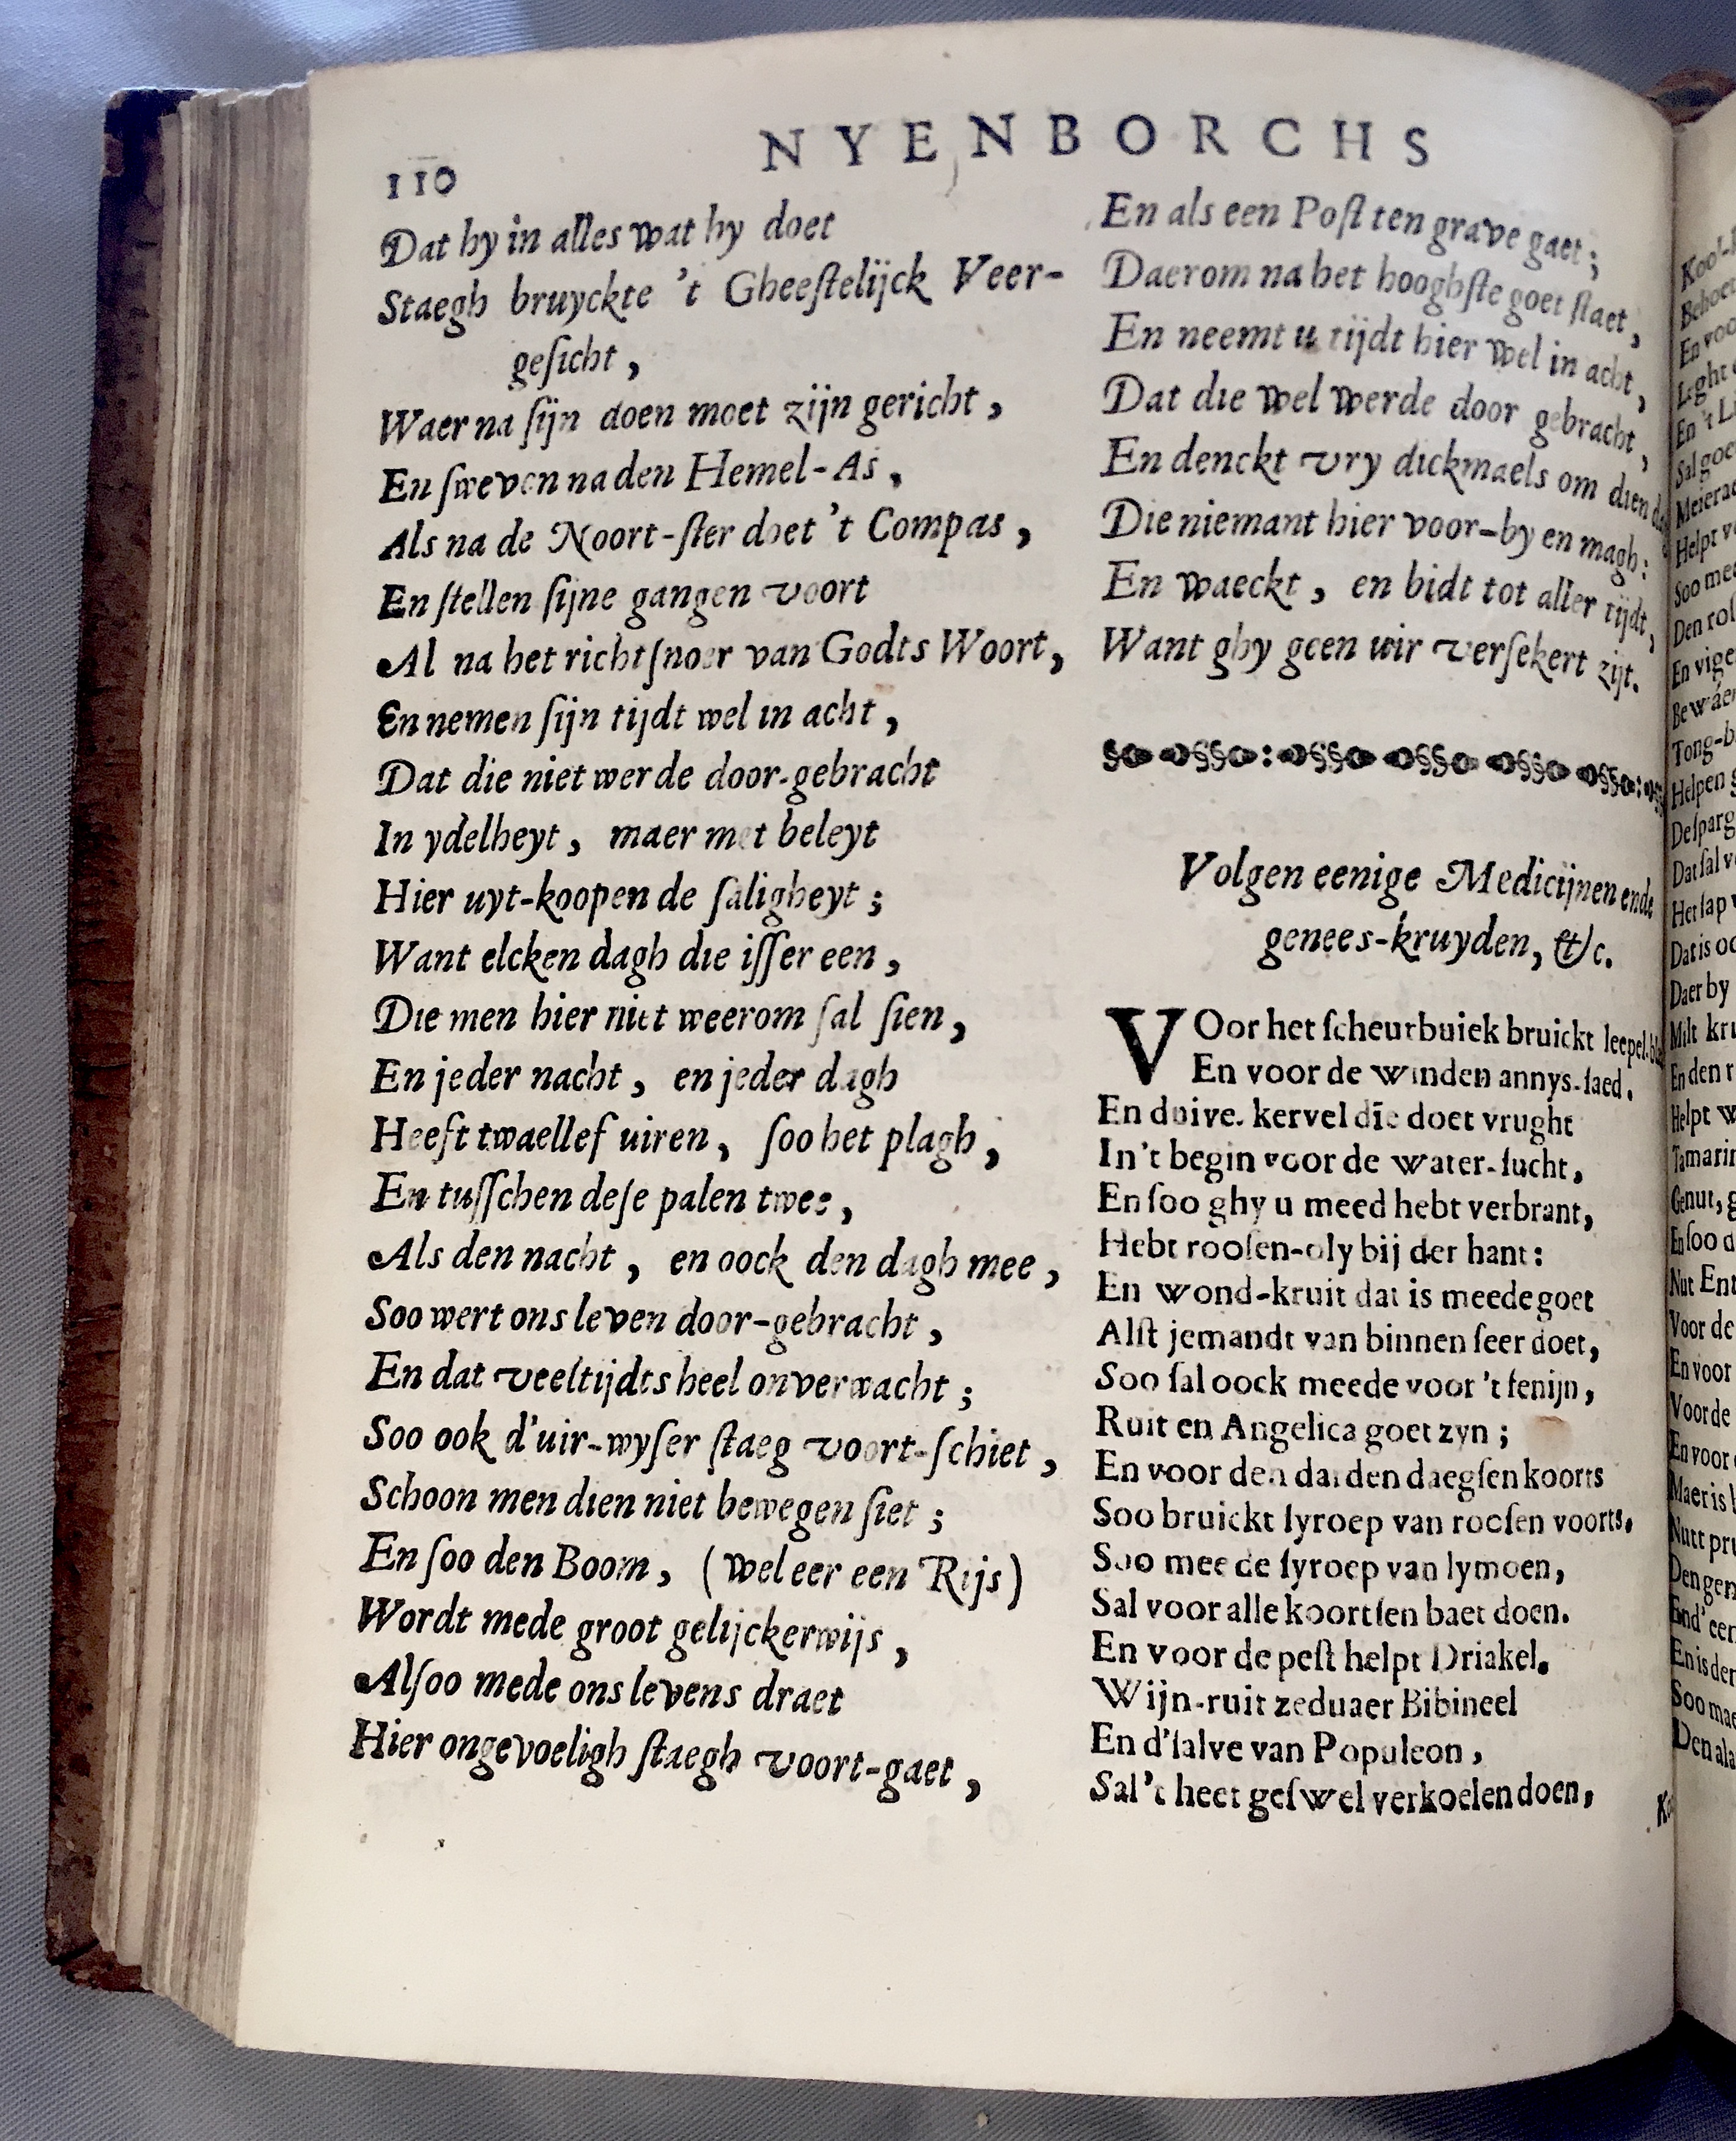 NYENBORCHS
110
Dat hy in alles wat hy doet
Staegh bruyckte 't Gheeſtelijck Veer-
geſicht,
Waer na ſijn doen moet zijn gericht,
En ſweven na den Hemel-As,
Als na de Noort-ſter doet 't Compas,
En ſtellen ſijne gangen voort
Al na het richtſnoer van Godts Woort,
En nemen ſijn tijdt wel in acht,
Dat die niet werde door-gebracht
In ydelheyt, maer met beleyt
Hier uyt-koopen de ſaligheyt;
Want elcken dagh die iſſer een,
Die men hier niet weerom ſal ſien,
En jeder nacht, en jeder dagh
Heeft twaellef uiren, ſoo het plagh,
En tuſſchen deſe palen twee,
Als den nacht, en oock den dagh mee,
Soo wert ons leven door-gebracht,
En dat veeltijdts heel onverwacht;
Soo ook d'uir-wyſer ſtaeg voort-ſchiet,
Schoon men dien niet bewegen ſiet;
En ſoo den Boom, (wel eer een Rijs)
Wordt mede groot gelijckerwijs,
Alſoo mede ons levens draet
Hier ongevoeligh ſtaegh voort-gaet,
En als een Poſt ten grave gaet;
Daerom na het hooghſte goet ſtaet,
En neemt u tijdt hier wel in acht,
Dat die wel werde door gebracht,
En denckt vry dickmaels om dien
Die niemant hier voor-by en magh:
En waeckt, en bidt tot aller tijdt,
Want ghy geen uir verſekert zijt.
Volgen eenige Medicijnen ende
genees-kruyden, &c.
VOor het ſcheurbuiek bruickt leepel-
En voor de winden annys-ſaed.
En duive. kervel die doet vrught
In't begin voor de water-ſucht,
En ſoo ghy u meed hebt verbrant,
Hebt rooſen-oly bij der hant:
En wond-kruit dat is meede goet
Alſt jemandt van binnen ſeer doet,
Soo ſal oock meede voor 't ſenijn,
Ruit en Angelica goet zyn;
En voor den darden daegſen koorts
Soo bruickt ſyroep van rooſen voorts.
Soo meede ſyroep van lymoen,
Sal voor alle koortſen baet doen.
En voor de peſt helpt Driakel.
Wijn-ruit zeduaer Bibineel
En d'ſalve van Populeon,
Sal 't heet geſwel verkoelen doen,
Behoet
En voo
En 't Li
Sal goe
Meierae
Helpt v
Soo mee
Den roſ
En vige
Tong-b
Helpen g
Dat ſal v
Het ſap
Dat is oo
Daer by
Milt kru
En den r
Helpt w
Genut, g
En ſoo d
Nut Ent
Voor de
En voor
Voor de
En voor
Maer is
Nutt pru
Den gem
En is der
Soo mae
Den ala